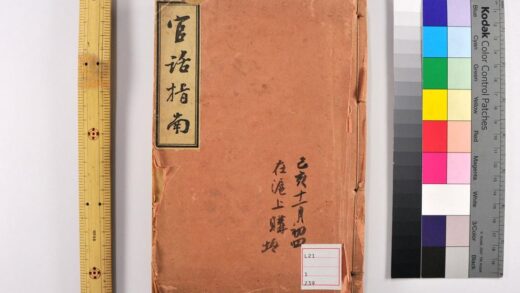 官话指南
己亥十一月初四
在滬上購
L21
1
259
Kodak Color Control Patches
Blue
Cyan
Green
Yellow
Red
Magenta
White
3/Color
Black